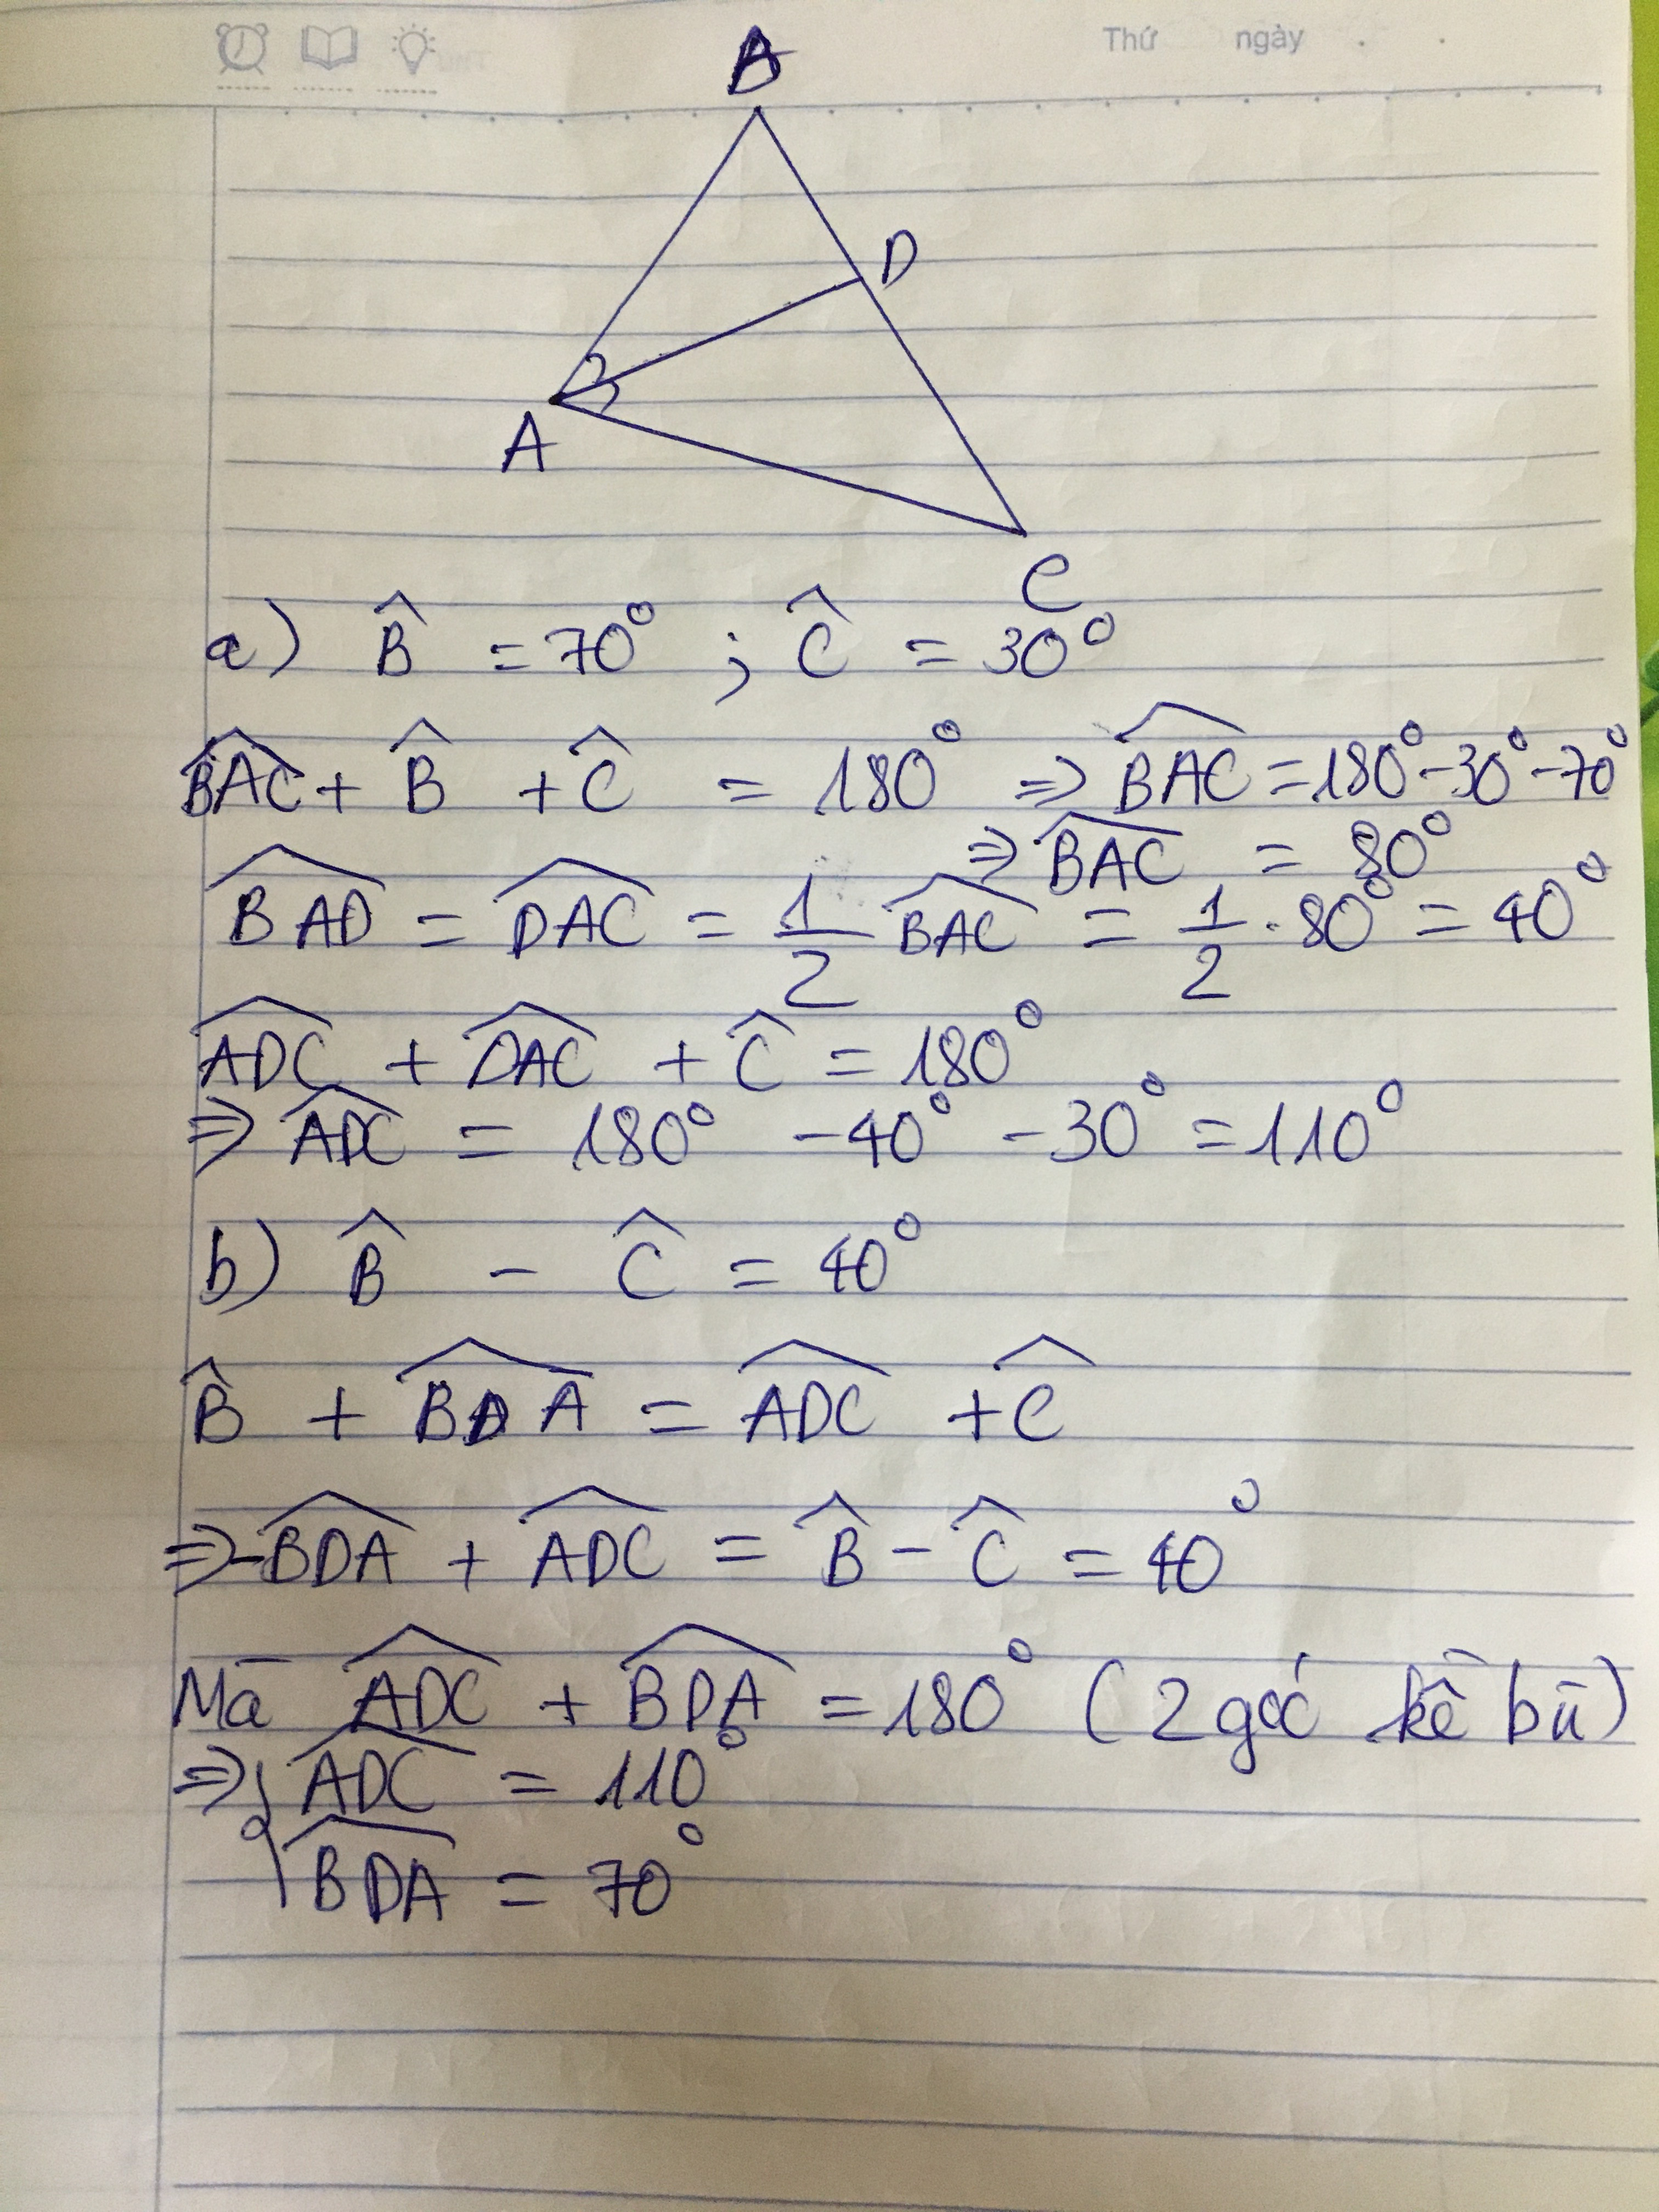 Thứ ngày . .
B
D
A
C
a) B̂ = 70° ; Ĉ = 30°
BAC + B̂ + Ĉ = 180° => BAC = 180° - 30° - 70°
=> BAC = 80°
BAD = DAC = 1/2 BAC = 1/2 . 80° = 40°
ADC + DAC + Ĉ = 180°
=> ADC = 180° - 40° - 30° = 110°
b) B̂ - Ĉ = 40°
B̂ + BDA = ADC + Ĉ
=> -BDA + ADC = B̂ - Ĉ = 40°
Mà ADC + BDA = 180° (2 góc kề bù)
=> { ADC = 110°
BDA = 70°